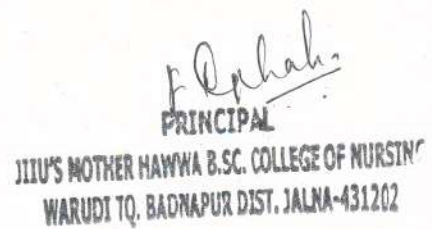 PRINCIPAL
JIIU'S MOTHER HAWWA B.SC. COLLEGE OF NURSING
WARUDI TQ. BADNAPUR DIST. JALNA-431202